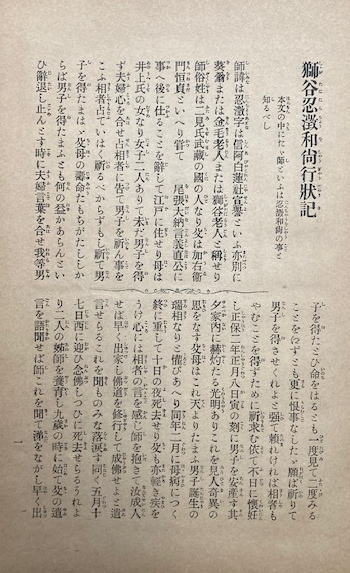 獅谷忍澂和尙行狀記
本文の中にたゞ師といふは忍澂和尙の事と
知るべし
師諱は忍澂字は信阿白蓮社宣譽といふ亦別に
葵翁または金毛老人または獅谷老人と稱せり
師俗姓は二見氏武蔵の國の人なり父は加右衞
門恒貞といへり嘗て 尾張大納言義直公に
事へ後に仕ることを辭して江戸に住せり母は
井上氏の女なり女子二人ありて未だ男子を得
ず夫婦心を合せ占相者に告て男子を祈ん事を
こふ相者占ていはく祈るべからずもし祈て男
子を得たまはゞ父母の壽命たもちがたししか
らば男子を得たまふとも何の益かあらんとい
ひ辭退し止んとす時に夫婦言葉を合せ我等男
子を得たとひ命をはるとも一度見て二度みる
ことを得ずとも更に恨事なしたゞ願ば祈りて
男子を得させくれよと强て賴れければ相者も
やむことを得ずために祈求む依て不日に懷妊
し正保二年正月八日寅の刻に男子を安產す其
夕家内に赫灼たる光明ありこれを見人奇異の
思をなす父母はこれ天よりたまふ男子誕生の
瑞相なりと懽びあへり同年二月に母病につく
終に重して十日の夜死去せり父も亦輕き疾を
うけ心には相者の言を感じ師を抱きて汝成人
せば早く出家し佛道を修行して成佛せよと遺
言せらるこれを聞ものみな落淚す同く五月十
七日西に迎ひ念佛しつひに死去せらるうれよ
り二人の姊師を養育し九歲の時に始て父の遺
言を語聞せば師これを聞て淚をながし早く出
一